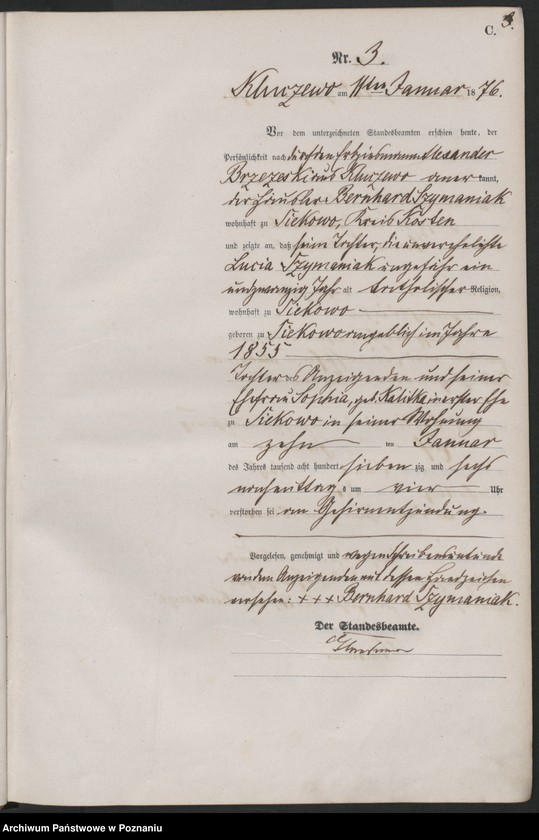 C. 3.
Nr. 3.
Kluczewo am 11ten Januar 1876.
Vor dem unterzeichneten Standesbeamten erschien heute, der
Persönlichkeit nach durch den Alexander
Brzezeski aus Kluczewo anerkannt,
der Häusler Bernhard Szymaniak
wohnhaft zu Siekowo, Kreis Kosten
und zeigte an, daß seine Tochter, die unverehelichte
Lucia Szymaniak ungefähr ein
und zwanzig Jahr alt katholischer Religion,
wohnhaft zu Siekowo
geboren zu Siekowo angeblich im Jahre
1855
Tochter des Anzeigenden und seiner
Ehefrau Sophia, geb. Kalitka, in erster Ehe
zu Siekowo in seiner Wohnung
am zehn ten Januar
des Jahres tausend acht hundert sieben zig und sechs
nachmittags um vier Uhr
verstorben sei an Gehirnentzündung.
Vorgelesen, genehmigt und wegen Schreibensunkunde
von dem Anzeigenden mit dessen Handzeichen
versehen: +++ Bernhard Szymaniak.
Der Standesbeamte.
Archiwum Państwowe w Poznaniu